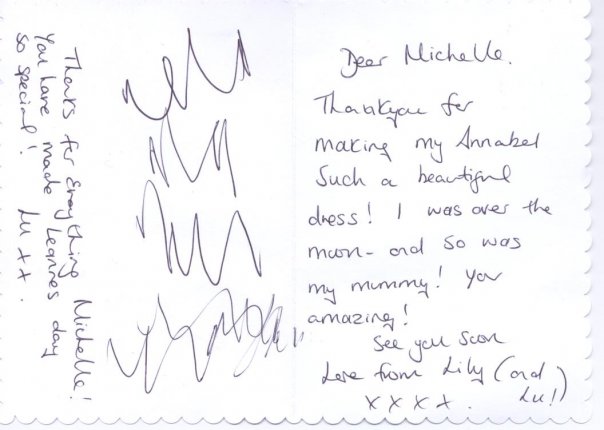 Dear Michelle.
Thankyou for
making my Annabel
Such a beautiful
dress! I was over the
moon - and so was
my mummy! You
amazing!
See you soon
Love from Lily (and
Lu!)
x x x x .
Thanks for Everything Michelle!
You have made Leannes day
so special!
Lu x x .